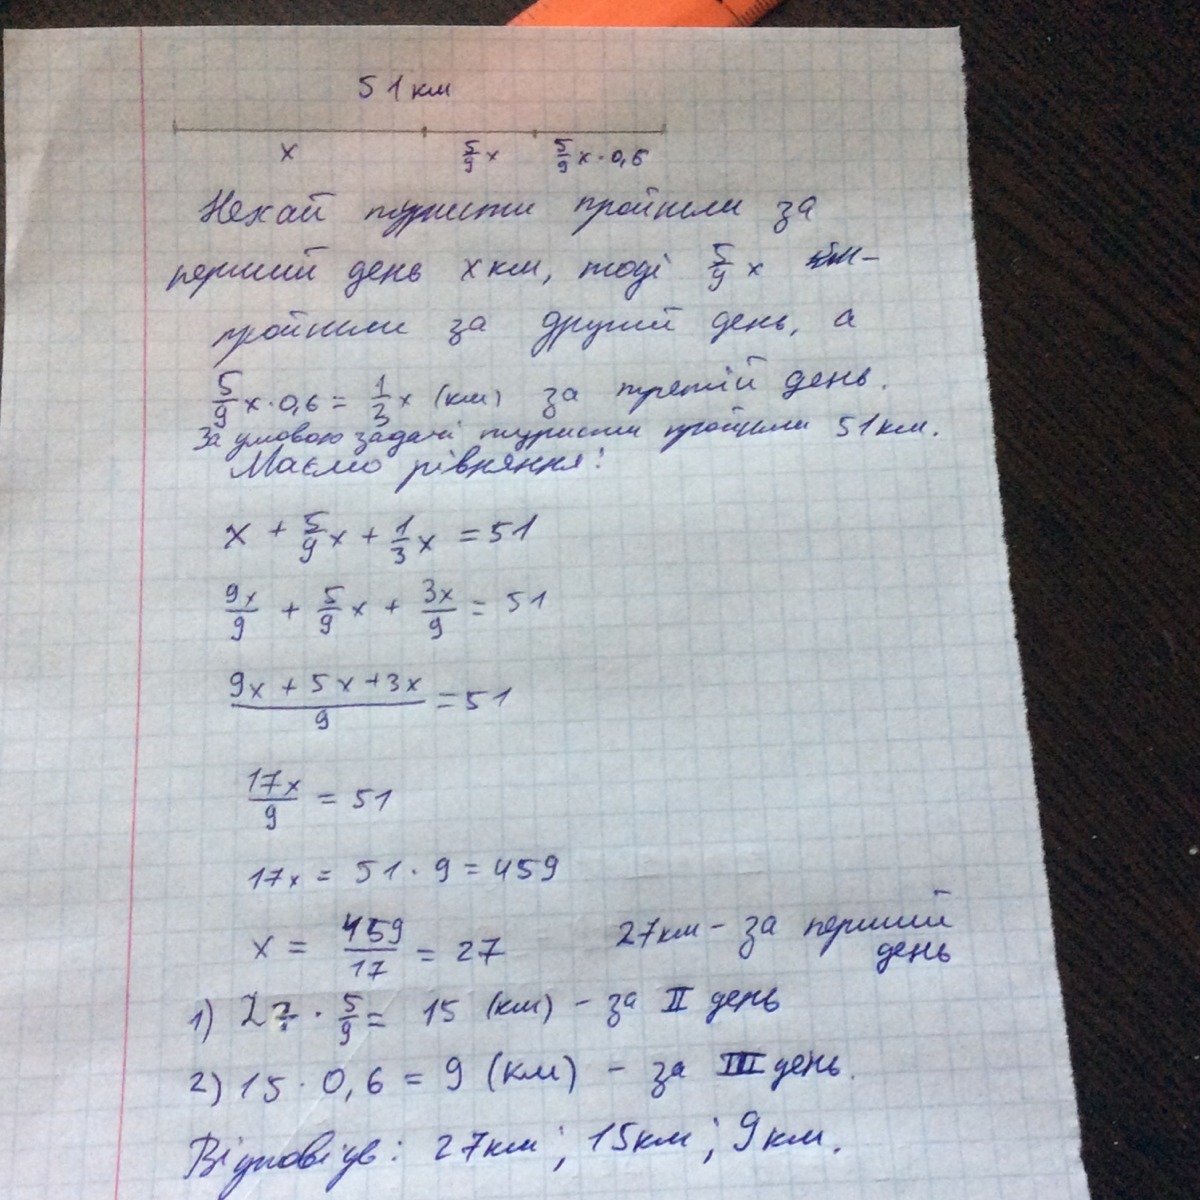 51 км
x 5/9 x 5/9 x · 0,6
Нехай туристи пройшли за
перший день x км, тоді 5/9 x км –
пройшли за другий день, а
5/9 x · 0,6 = 1/3 x (км) за третій день.
За умовою задачі туристи пройшли 51 км.
Маємо рівняння:
x + 5/9 x + 1/3 x = 51
9x/9 + 5/9 x + 3x/9 = 51
(9x + 5x + 3x)/9 = 51
17x/9 = 51
17x = 51 · 9 = 459
x = 459/17 = 27 27км – за перший
день
1) 27 · 5/9 = 15 (км) – за II день
2) 15 · 0,6 = 9 (км) – за III день.
Відповідь: 27км; 15км; 9км.